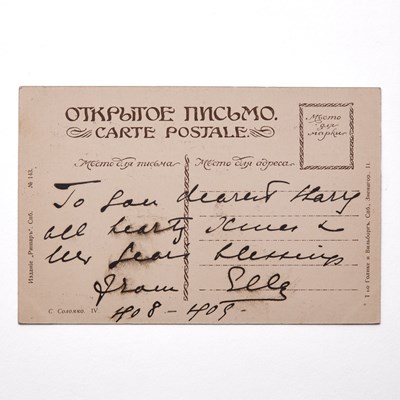 ОТКРЫТОЕ ПИСЬМО.
CARTE POSTALE.
Мѣсто для марки
Мѣсто для письма
Мѣсто для адреса
To you dearest Harry
all hearty Xmas &
New Years blessings
from Ella
908 - 909.
С. Соломко. IV
Изданіе „Ришаръ“, Спб. № 143.
Т-во Голике и Вильборгъ. Спб., Звенигор. 11.